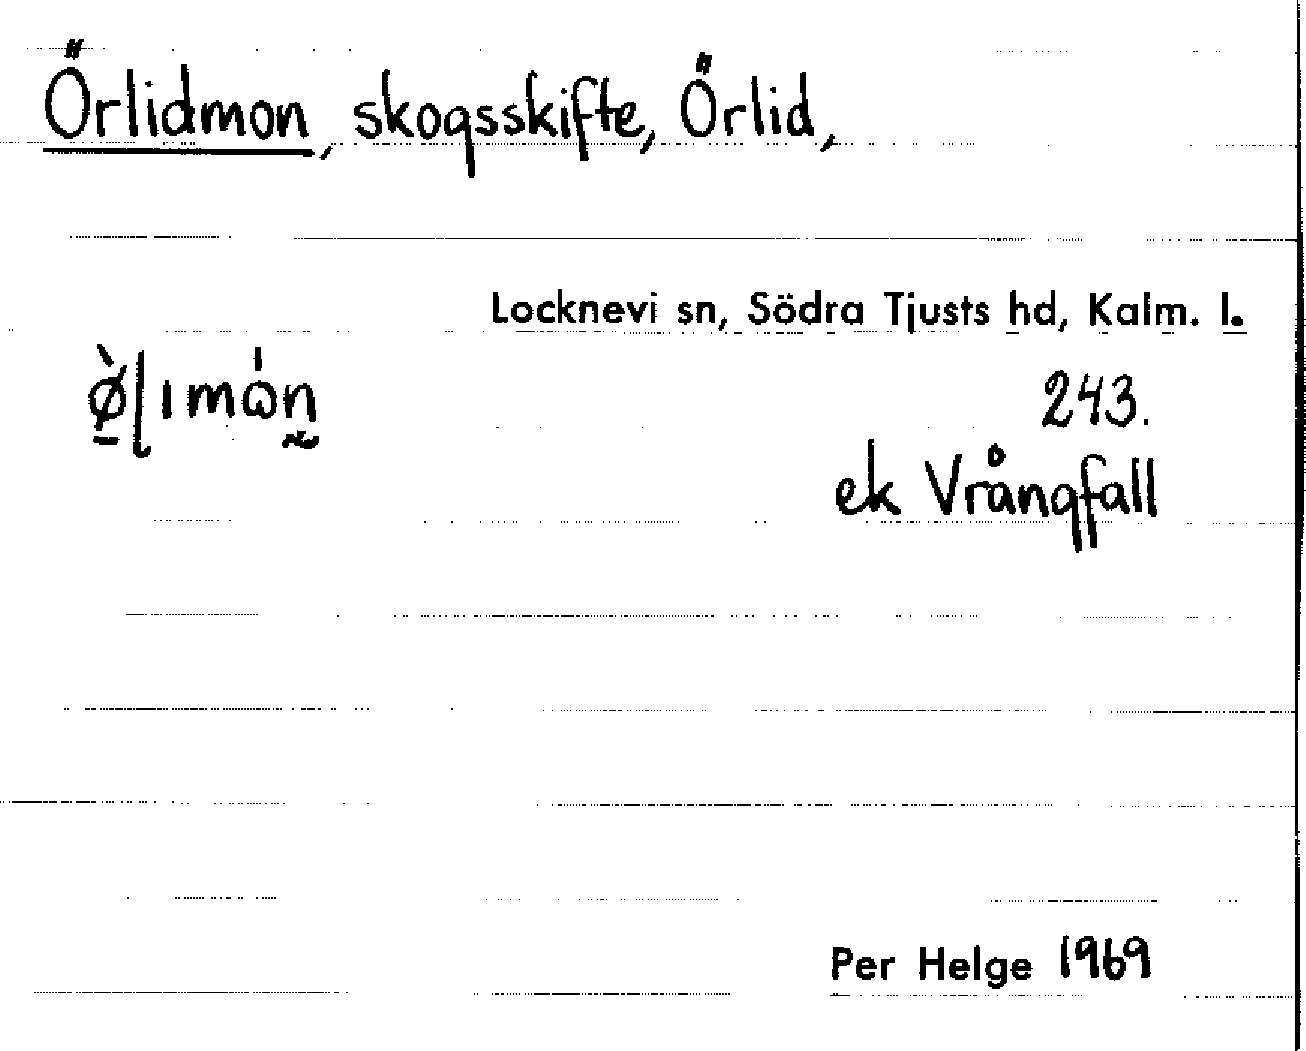 Örlidmon, skogsskifte, Örlid,
Locknevi sn, Södra Tjusts hd, Kalm. l.
243.
ek Vrångfall
Per Helge 1969